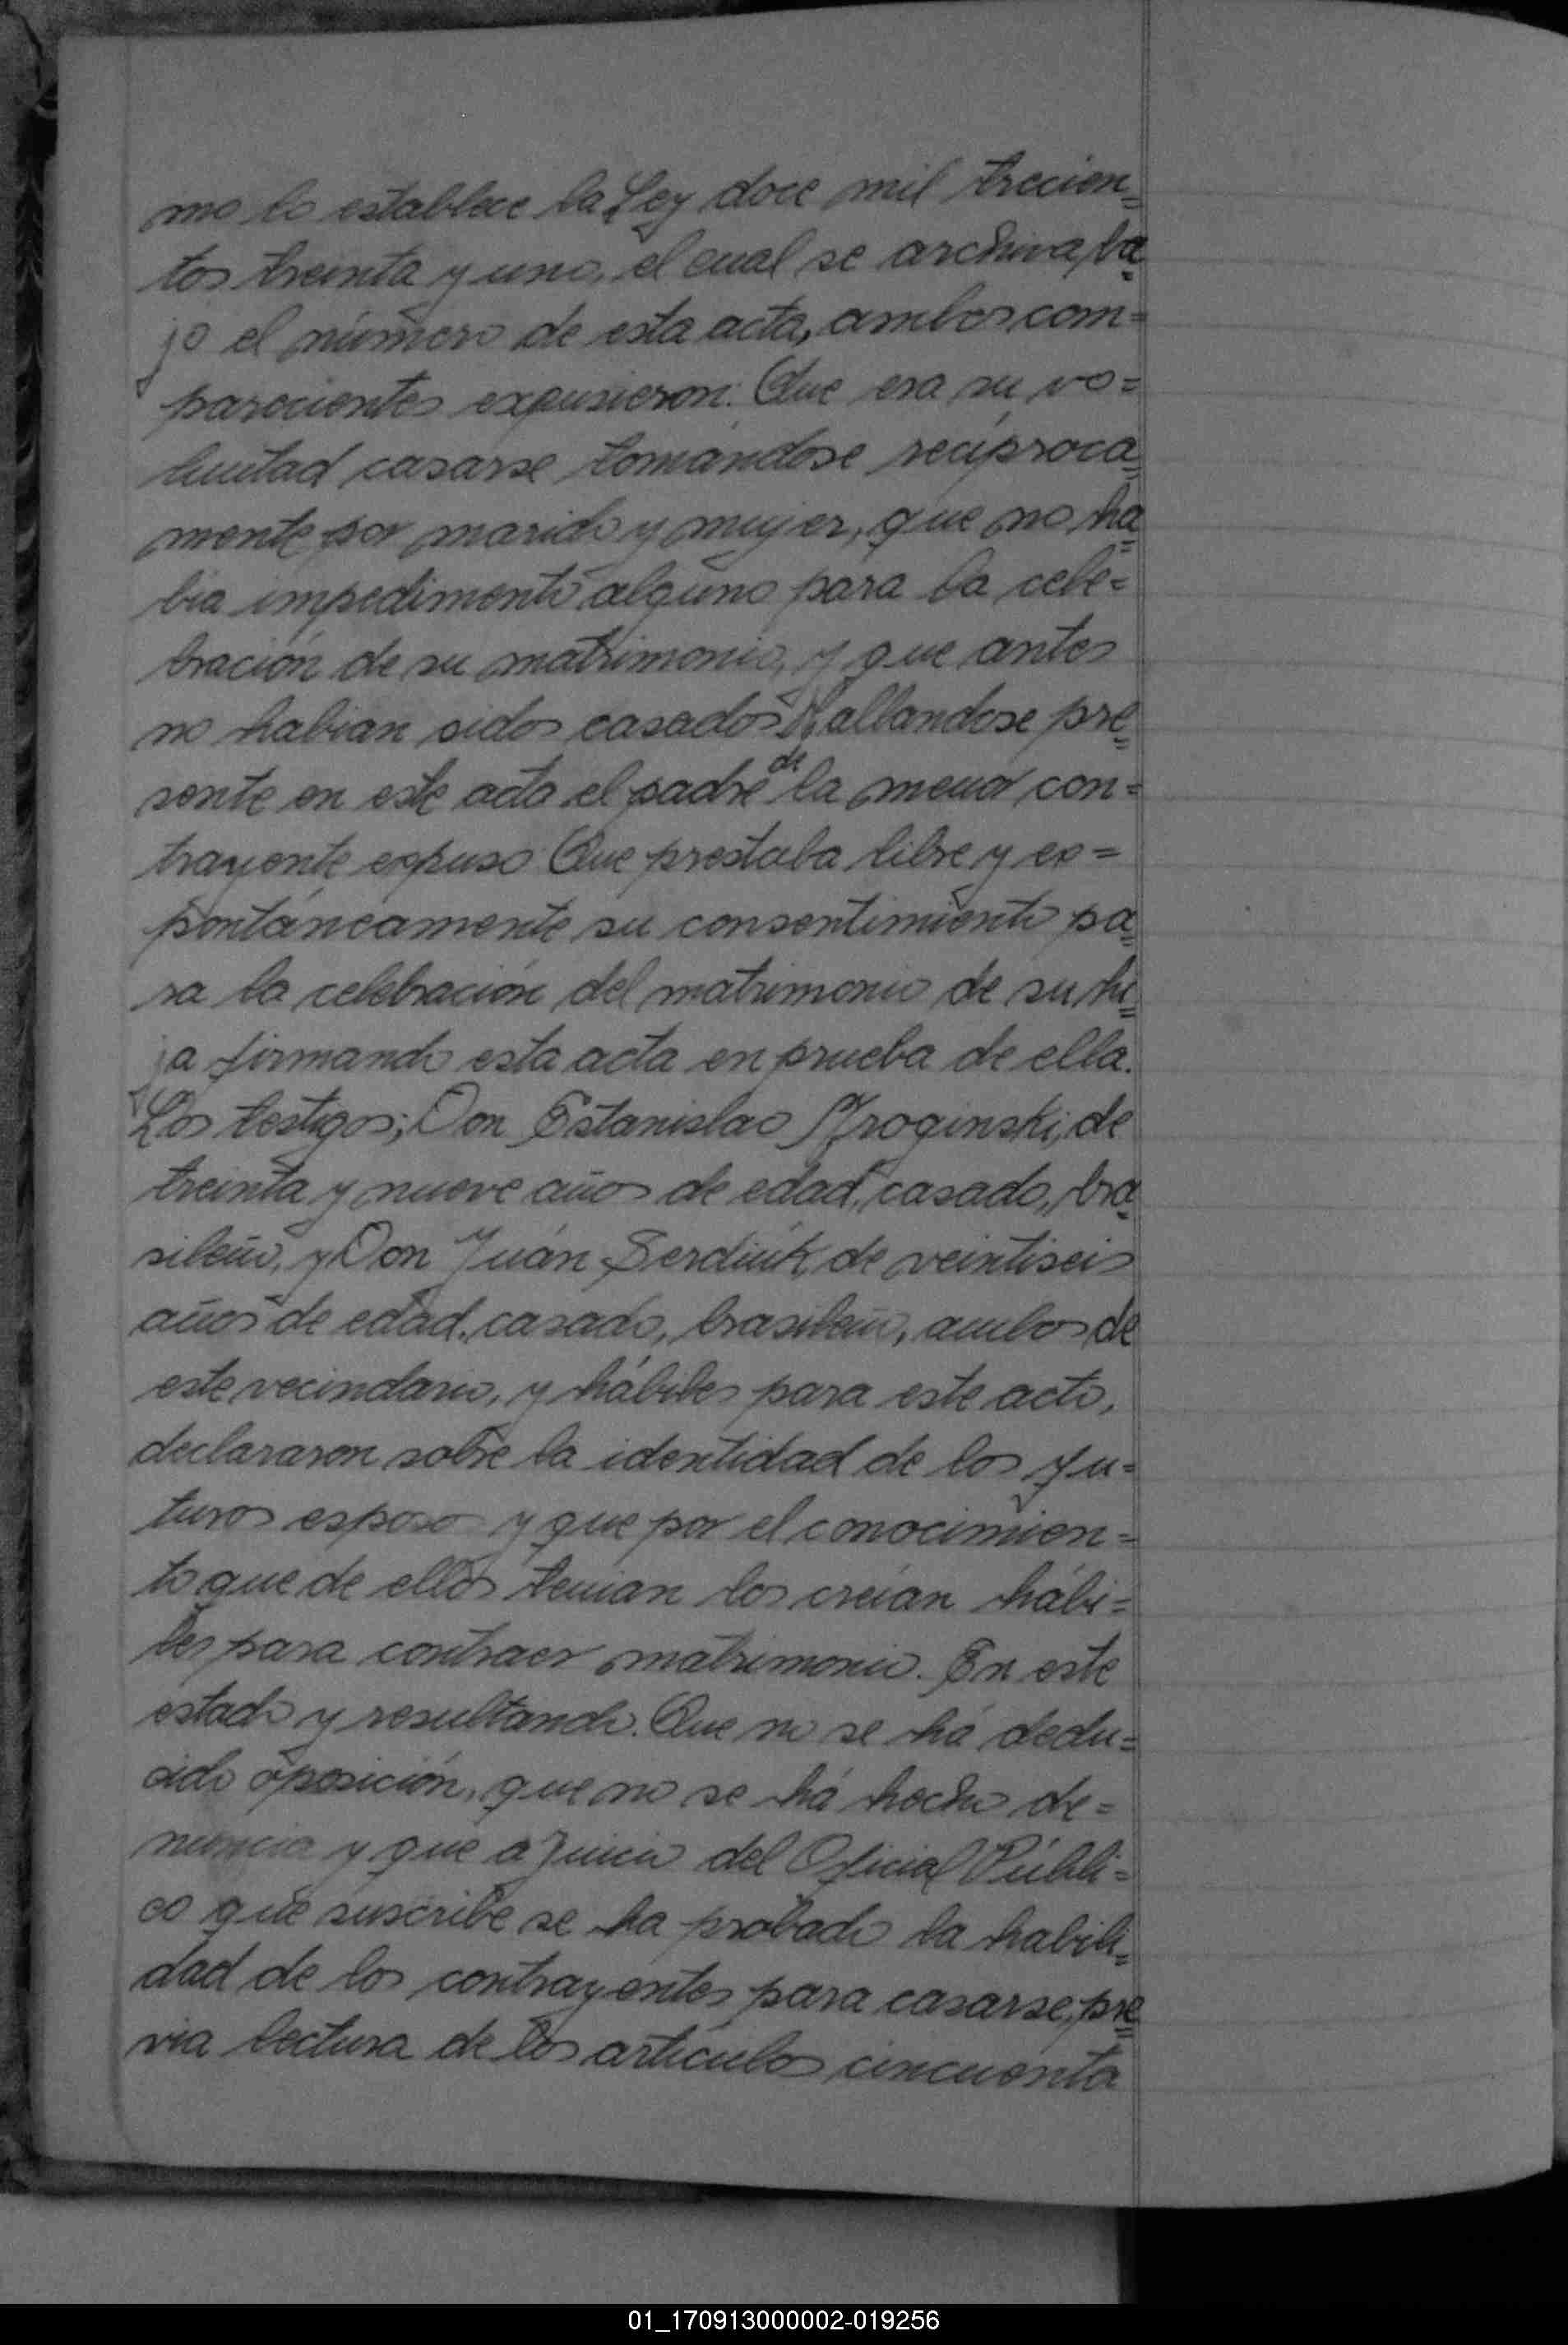 mo lo establece la Ley doce mil trecien=
tos treinta y uno, el cual se archiva ba=
jo el número de esta acta, ambos com=
parecientes expusieron: Que era su vo=
luntad casarse tomándose recíproca=
mente por marido y mujer, que no ha=
bia impedimento alguno para la cele=
bración de su matrimonio, y que antes
no habian sidos casados Hallandose pre=
sente en este acto el padre de la menor con=
trayente expuso: Que prestaba libre y es=
pontáneamente su consentimiento pa=
ra la celebración del matrimonio de su hi=
ja firmando esta acta en prueba de ella.
Los testigos; Don Estanislao de
treinta y nueve años de edad, casado, bra=
sileño, y Don Juán Serdiuk, de veintiseis
años de edad, casado, brasileño, ambos de
este vecindario, y hábiles para este acto,
declararon sobre la identidad de los fu=
turos esposo y que por el conocimien=
to que de ellos tenian los creían hábi=
les para contraer matrimonio. En este
estado y resultando. Que no se há dedu=
cido oposición, que no se há hecho de=
nuncia y que a Juicio del Oficial Públi=
co que suscribe se ha probado la habili=
dad de los contrayentes para casarse, pre=
via lectura de los artículos cincuenta
01_170913000002-019256